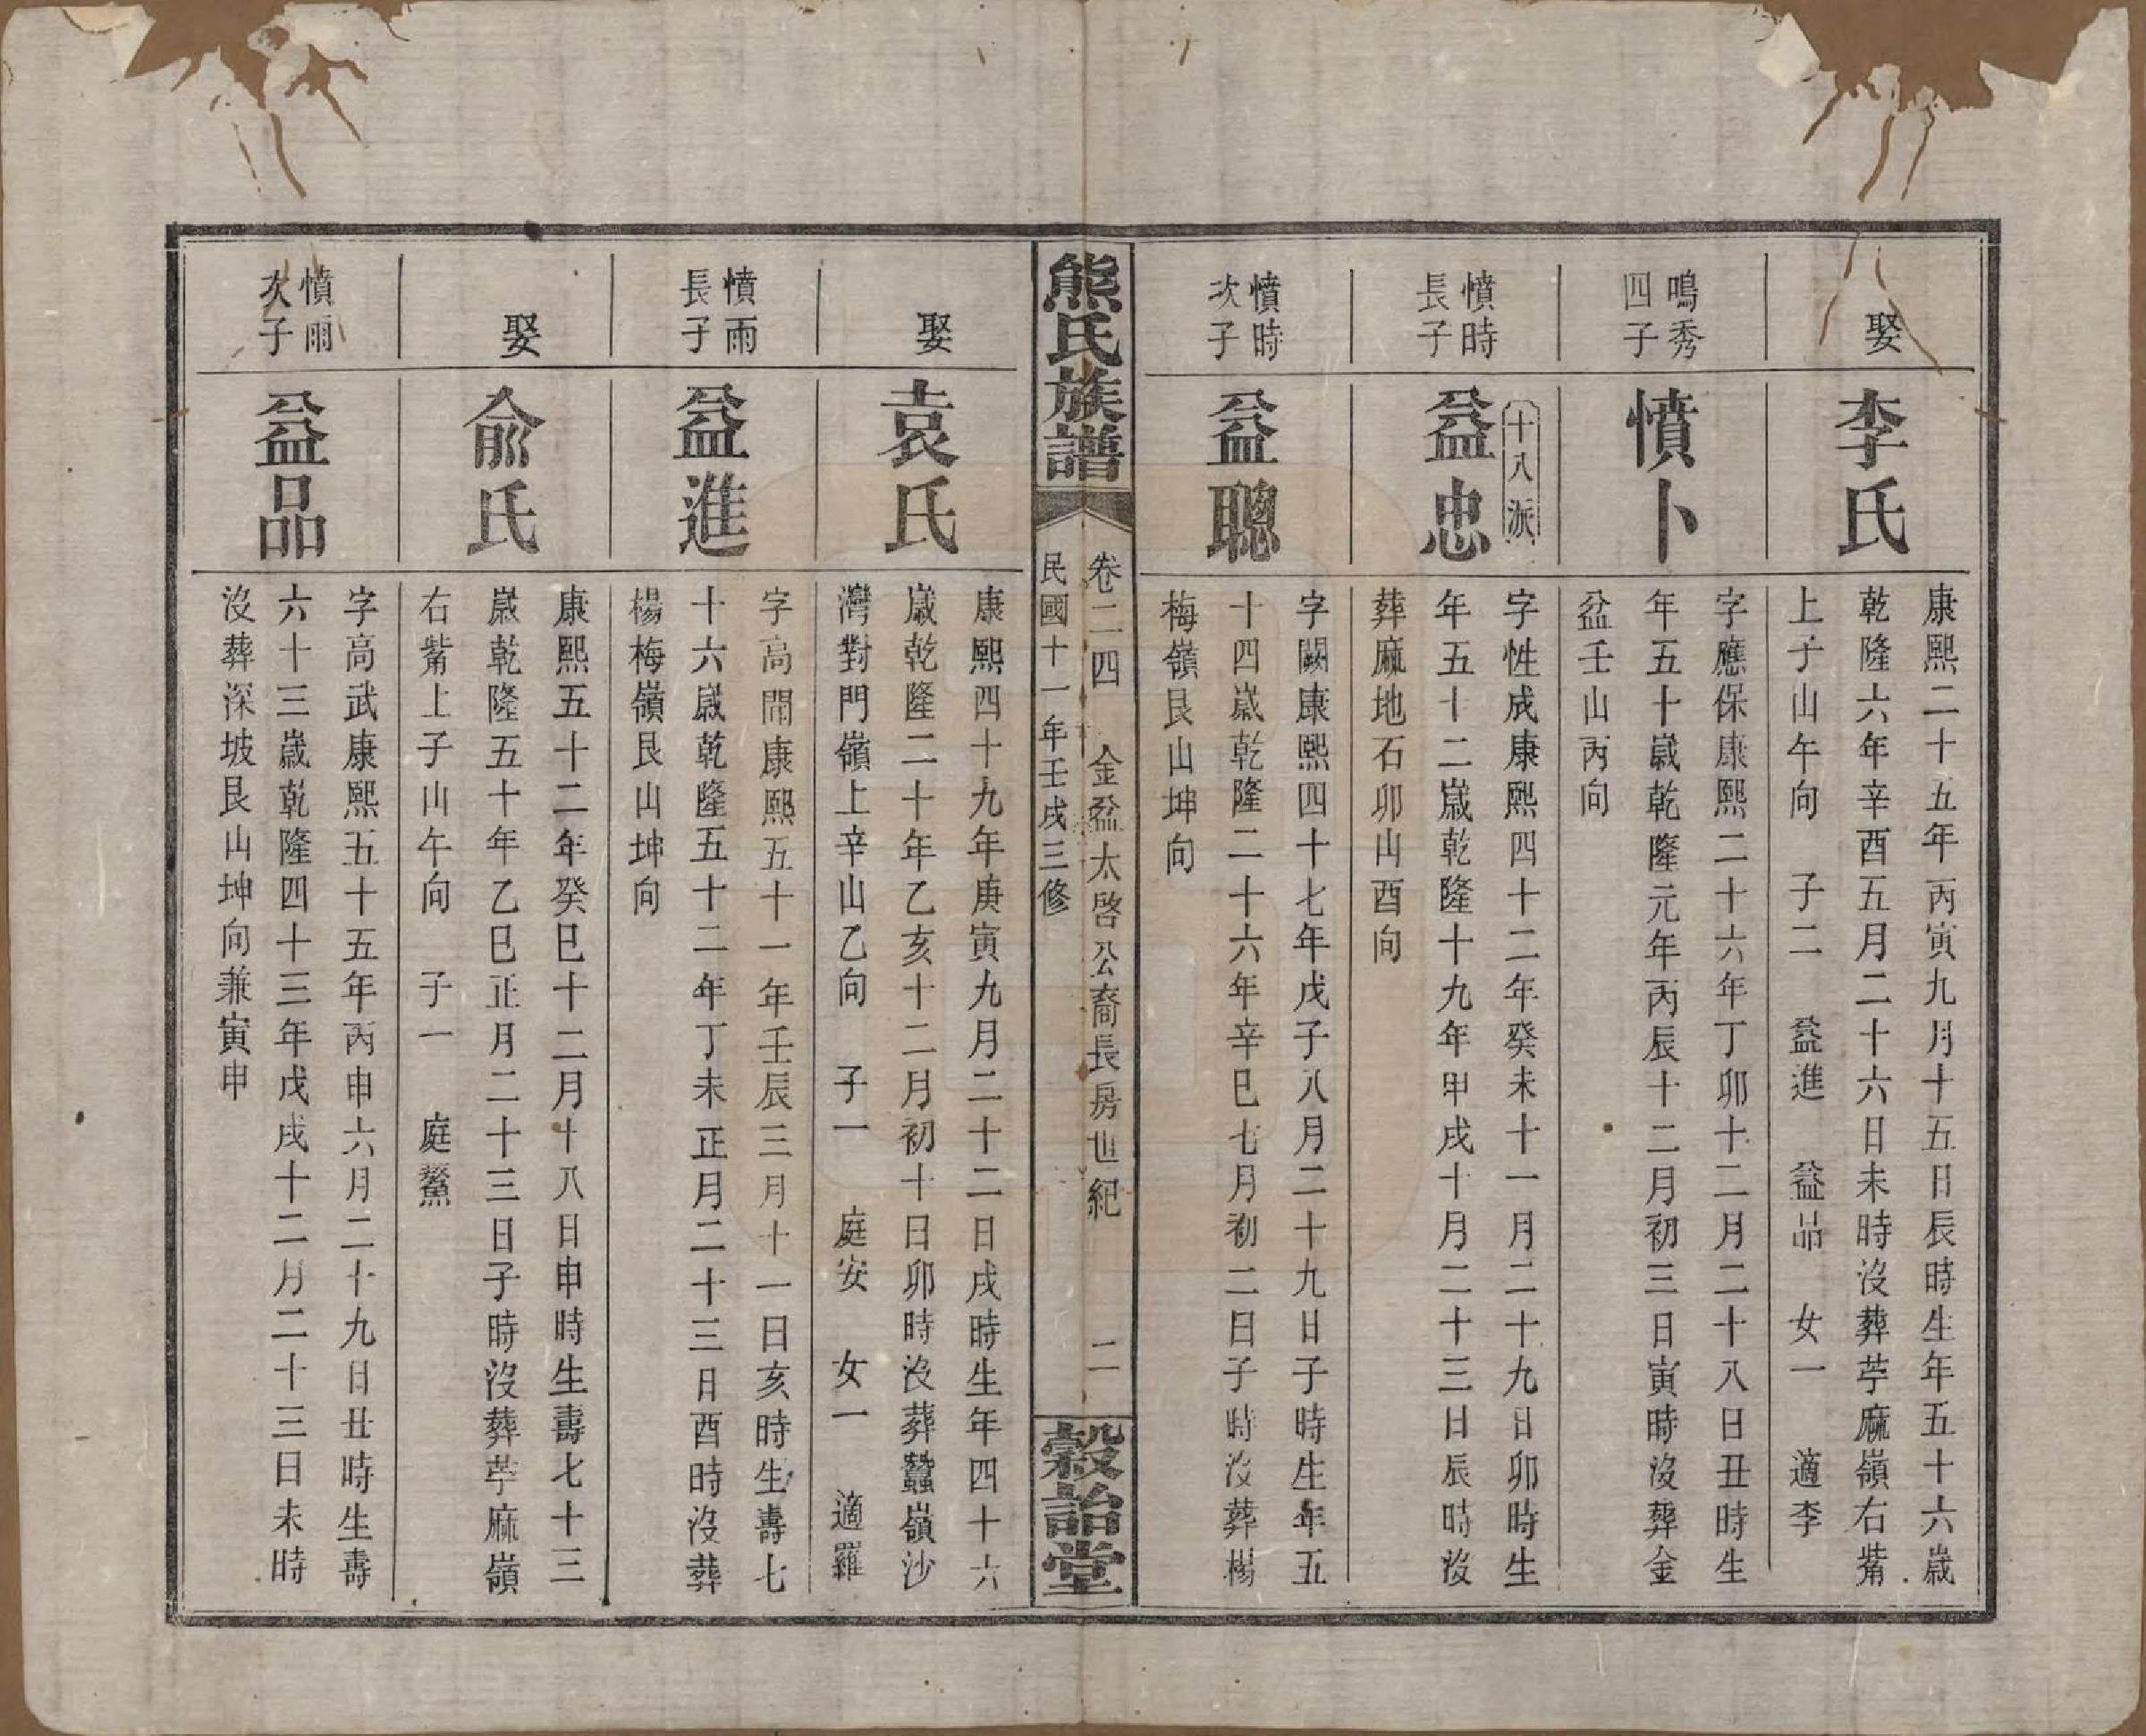 娶
李氏
康熙二十五年丙寅九月十五日辰時生年五十六歲
乾隆六年辛酉五月二十六日未時沒葬苧麻嶺右觜
上子山午向 子二 益進 益品 女一 適李
鳴秀
四子
憤卜
字應保康熙二十六年丁卯十二月二十八日丑時生
年五十歲乾隆元年丙辰十二月初三日寅時沒葬金
盆壬山丙向
十八派
憤時
長子
益忠
字性成康熙四十二年癸未十一月二十九日卯時生
年五十二歲乾隆十九年甲戌十月二十三日辰時沒
葬麻地石卯山酉向
憤時
次子
益聰
字闕康熙四十七年戊子八月二十九日子時生年五
十四歲乾隆二十六年辛巳七月初二日子時沒葬楊
梅嶺艮山坤向
熊氏族譜
卷二四 金盆太啓公裔長房世紀 二
民國十一年壬戌三修
穀詒堂
娶
袁氏
康熙四十九年庚寅九月二十二日戌時生年四十六
歲乾隆二十年乙亥十二月初十日卯時沒葬蠶嶺沙
灣對門嶺上辛山乙向 子一 庭安 女一 適羅
憤雨
長子
益進
字高開康熙五十一年壬辰三月十一日亥時生壽七
十六歲乾隆五十二年丁未正月二十三日酉時沒葬
楊梅嶺艮山坤向
娶
俞氏
康熙五十二年癸巳十二月十八日申時生壽七十三
歲乾隆五十年乙巳正月二十三日子時沒葬苧麻嶺
右觜上子山午向 子一 庭鰲
憤雨
次子
益品
字高武康熙五十五年丙申六月二十九日丑時生壽
六十三歲乾隆四十三年戊戌十二月二十三日未時
沒葬深坡艮山坤向兼寅申